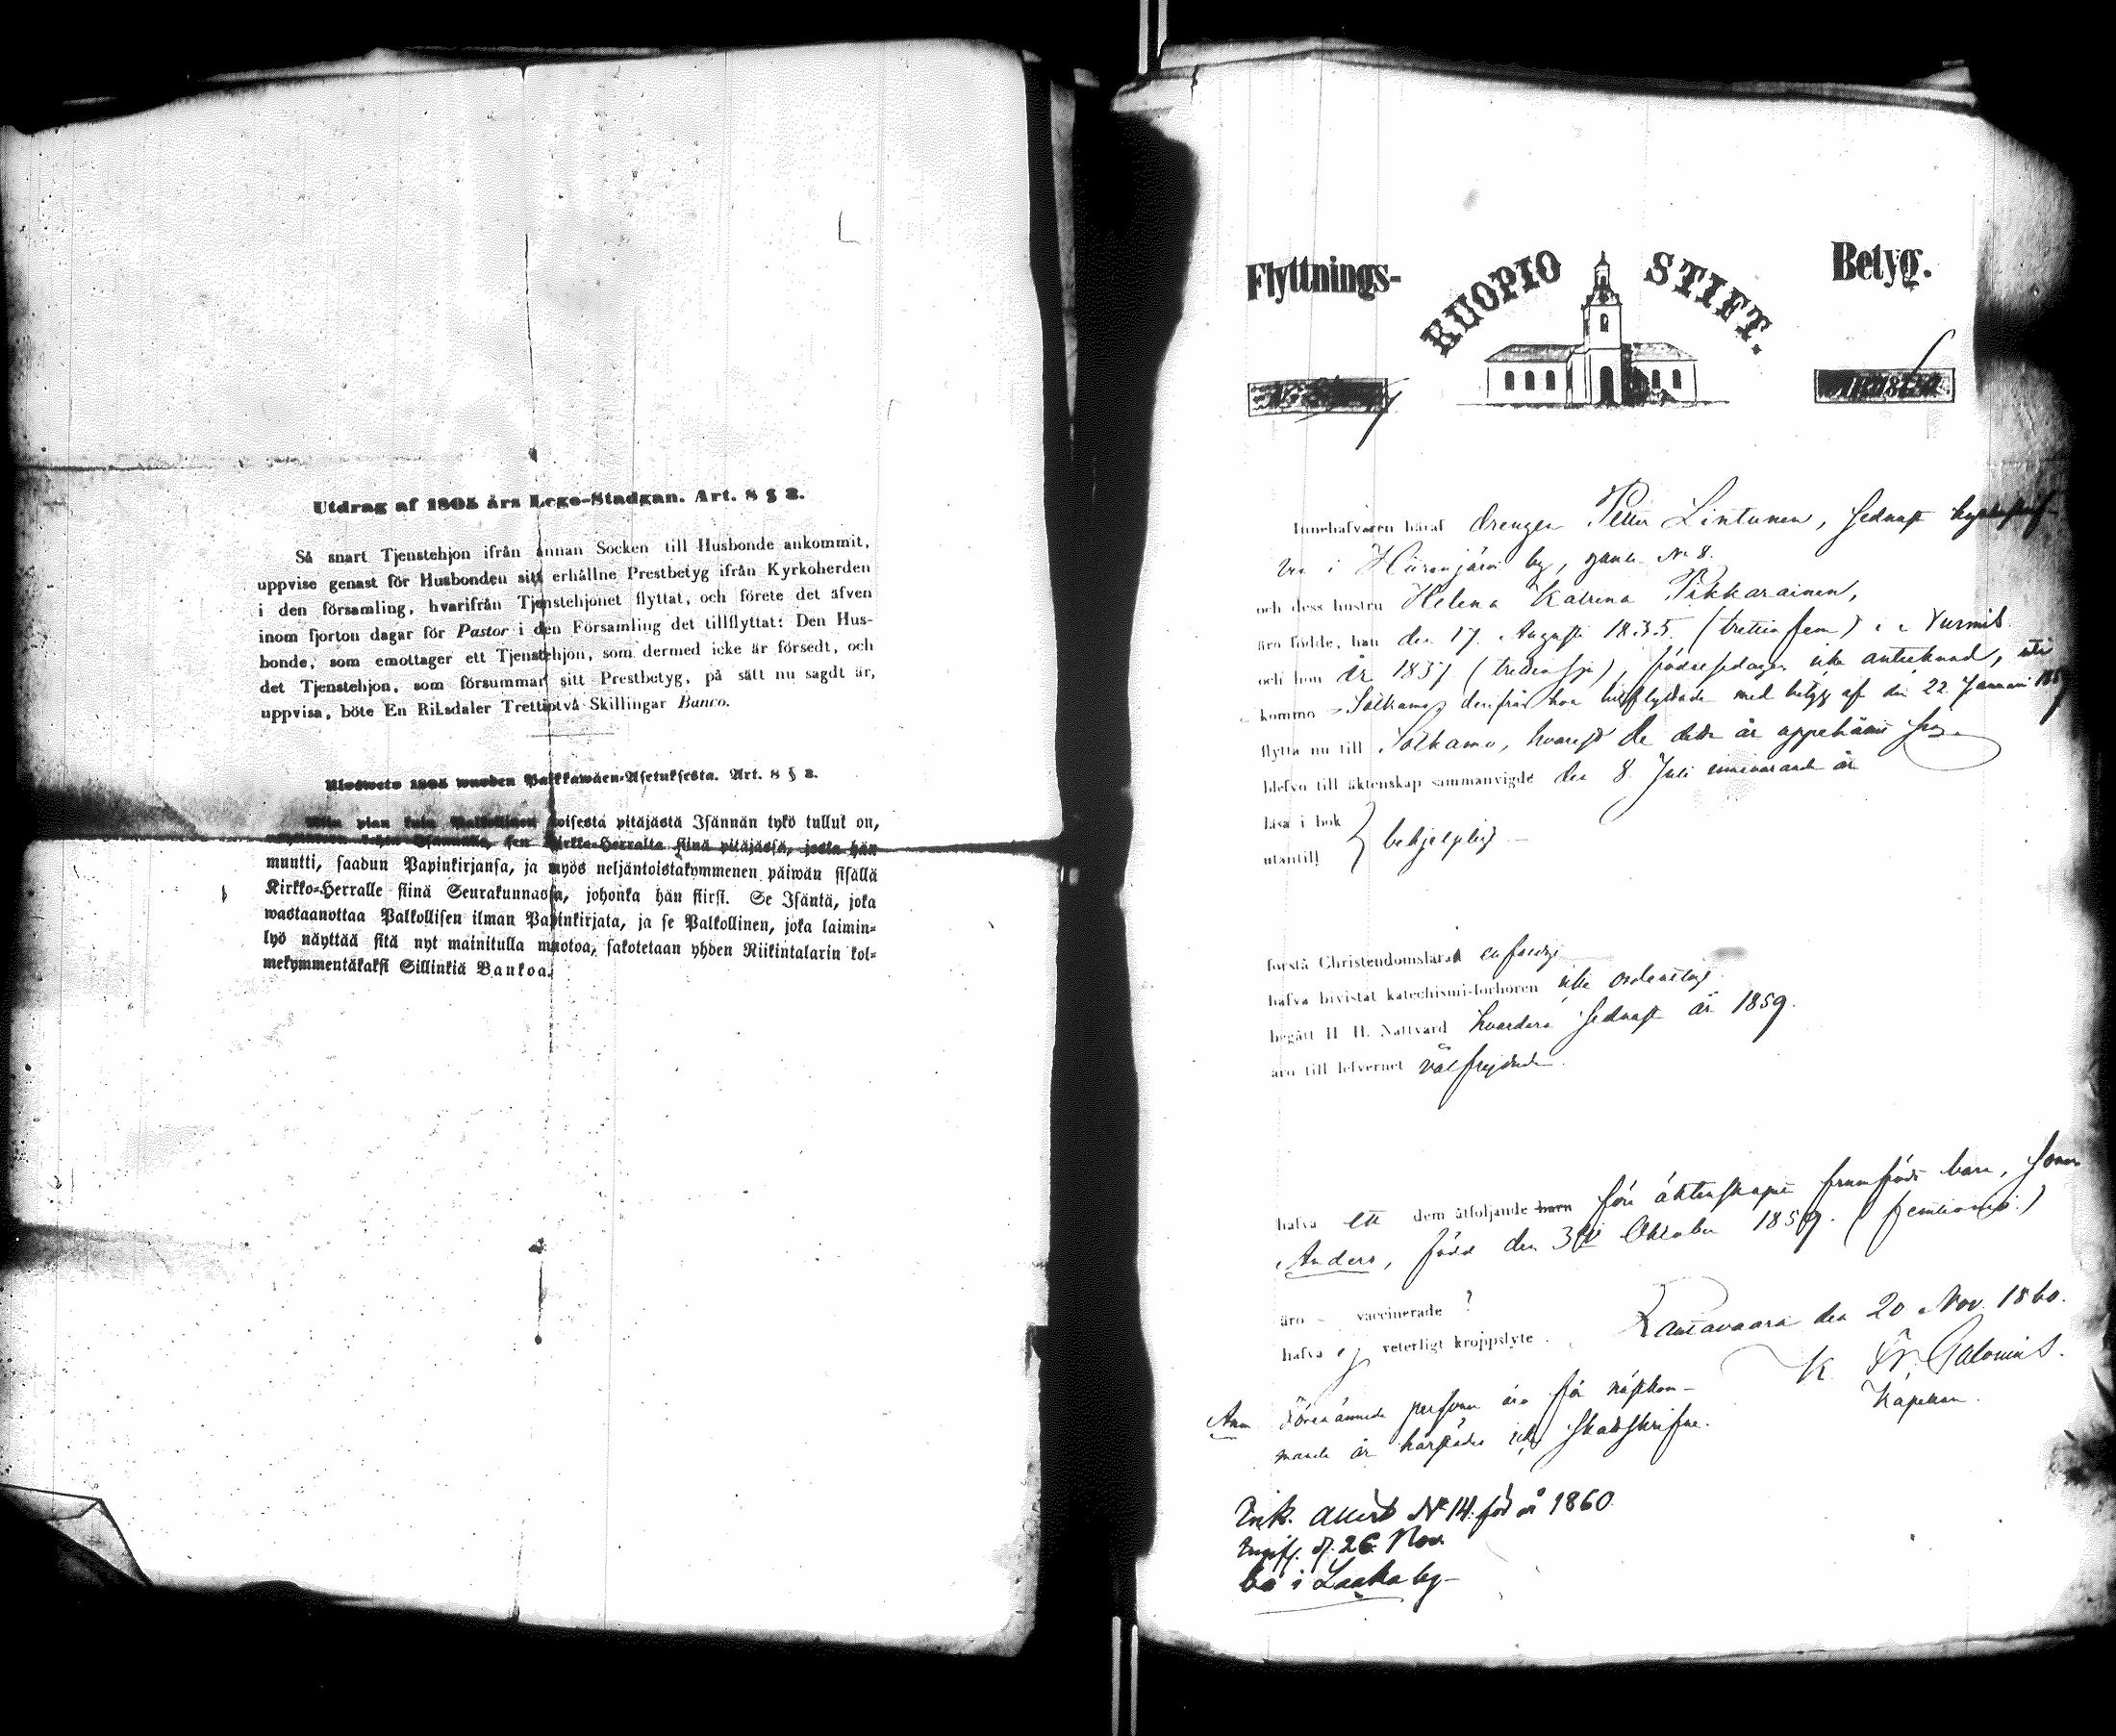 Utdrag af 1805 års Lego-Stadgan. Art. 8 § 2.
Så snart Tjenstehjon ifrån annan Socken till Husbonde ankommit,
uppvise genast för Husbonden sitt erhållne Prestbetyg ifrån Kyrkoherden
i den församling, hvarifrån Tjenstehjonet flyttat, och förete det äfven
inom fjorton dagar för Pastor i den Församling det tillflyttat: Den Hus-
bonde, som emottager ett Tjenstehjon, som dermed icke är försedt, och
det Tjenstehjon, som försummar sitt Prestbetyg, på sätt nu sagdt är,
uppvisa, böte En Riksdaler Trettiotvå Skillingar Banco.
Ulosweto 1805 wuoden Palkkawäen-Asetuksesta. Art. 8 § 2.
Niin pian kuin Palkollinen toisesta pitäjästä Isännän tykö tullut on,
Isännälle, sen Kirkko-Herralta siinä pitäjässä, josta hän
muutti, saadun Papinkirjansa, ja myös neljäntoistakymmenen päiwän sisällä
Kirkko-Herralle siinä Seurakunnassa, johonka hän siirsi. Se Isäntä, joka
wastaanottaa Palkollisen ilman Papinkirjata, ja se Palkollinen, joka laimin-
lyö näyttää sitä nyt mainitulla muotoa, sakotetaan yhden Riikintalarin kol-
mekymmentäkaksi Sillinkiä Bankoa.
Flyttnings- KUOPIO STIFT. Betyg.
Innehafvaren häraf drengen Petter Lintunen, sednast
i Hiirenjärvi by, N:o 8.
och dess hustru Helena Katrina Pikkarainen,
äro födde, han den 17 Augusti 1835 (trettiofem) i Nurmis
och hon år 1837 (trettiosju), födelsedagen icke antecknad, uti
komne Sotkamo derifrån hon hitflyttade med betyg af den 22 Januari
flytta nu till Sotkamo, hvarest de detta år uppehållit sig
blefvo till äktenskap sammanvigde den 8 Juli innevarande år
läsa i bok
utantill } behjelpligt
förstå Christendomsläran enfaldigt
hafva bivistat katechismi-förhören icke ordentligt
begått H. H. Nattvard hvardera sednast år 1859.
äro till lefvernet välfrejdade.
hafva ett dem åtföljande barn före äktenskapet framfödt barn, sonen
Anders, född den Oktober 1859. (femtionio)
äro vaccinerade ?
hafva ej veterligt kroppslyte. Rautavaara den 20 Nov. 1860.
K. Fr. Calonius.
Kapellan.
Anm Förenämnde personer äro för nästkom-
mande år härstädes icke skattskrifne.
Ink. attest N:o 14 för år 1860
d. 26 Nov.
bo i Laaka by